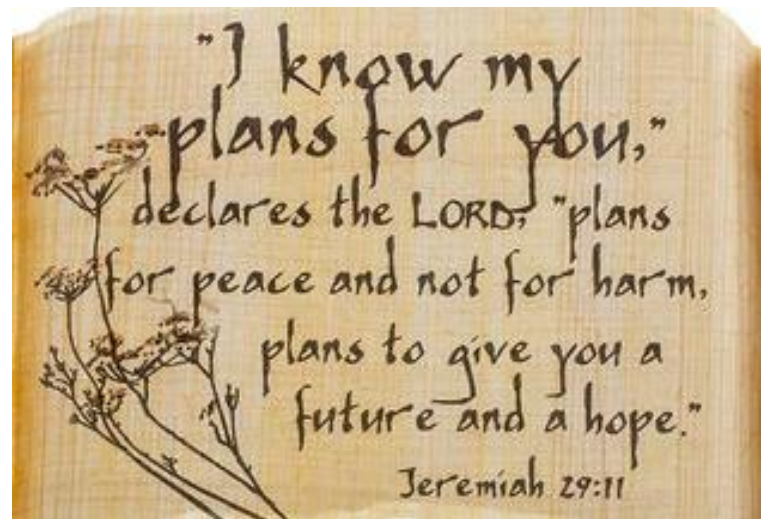 "I know my
plans for you,"
declares the LORD, "plans
for peace and not for harm,
plans to give you a
future and a hope."
Jeremiah 29:11